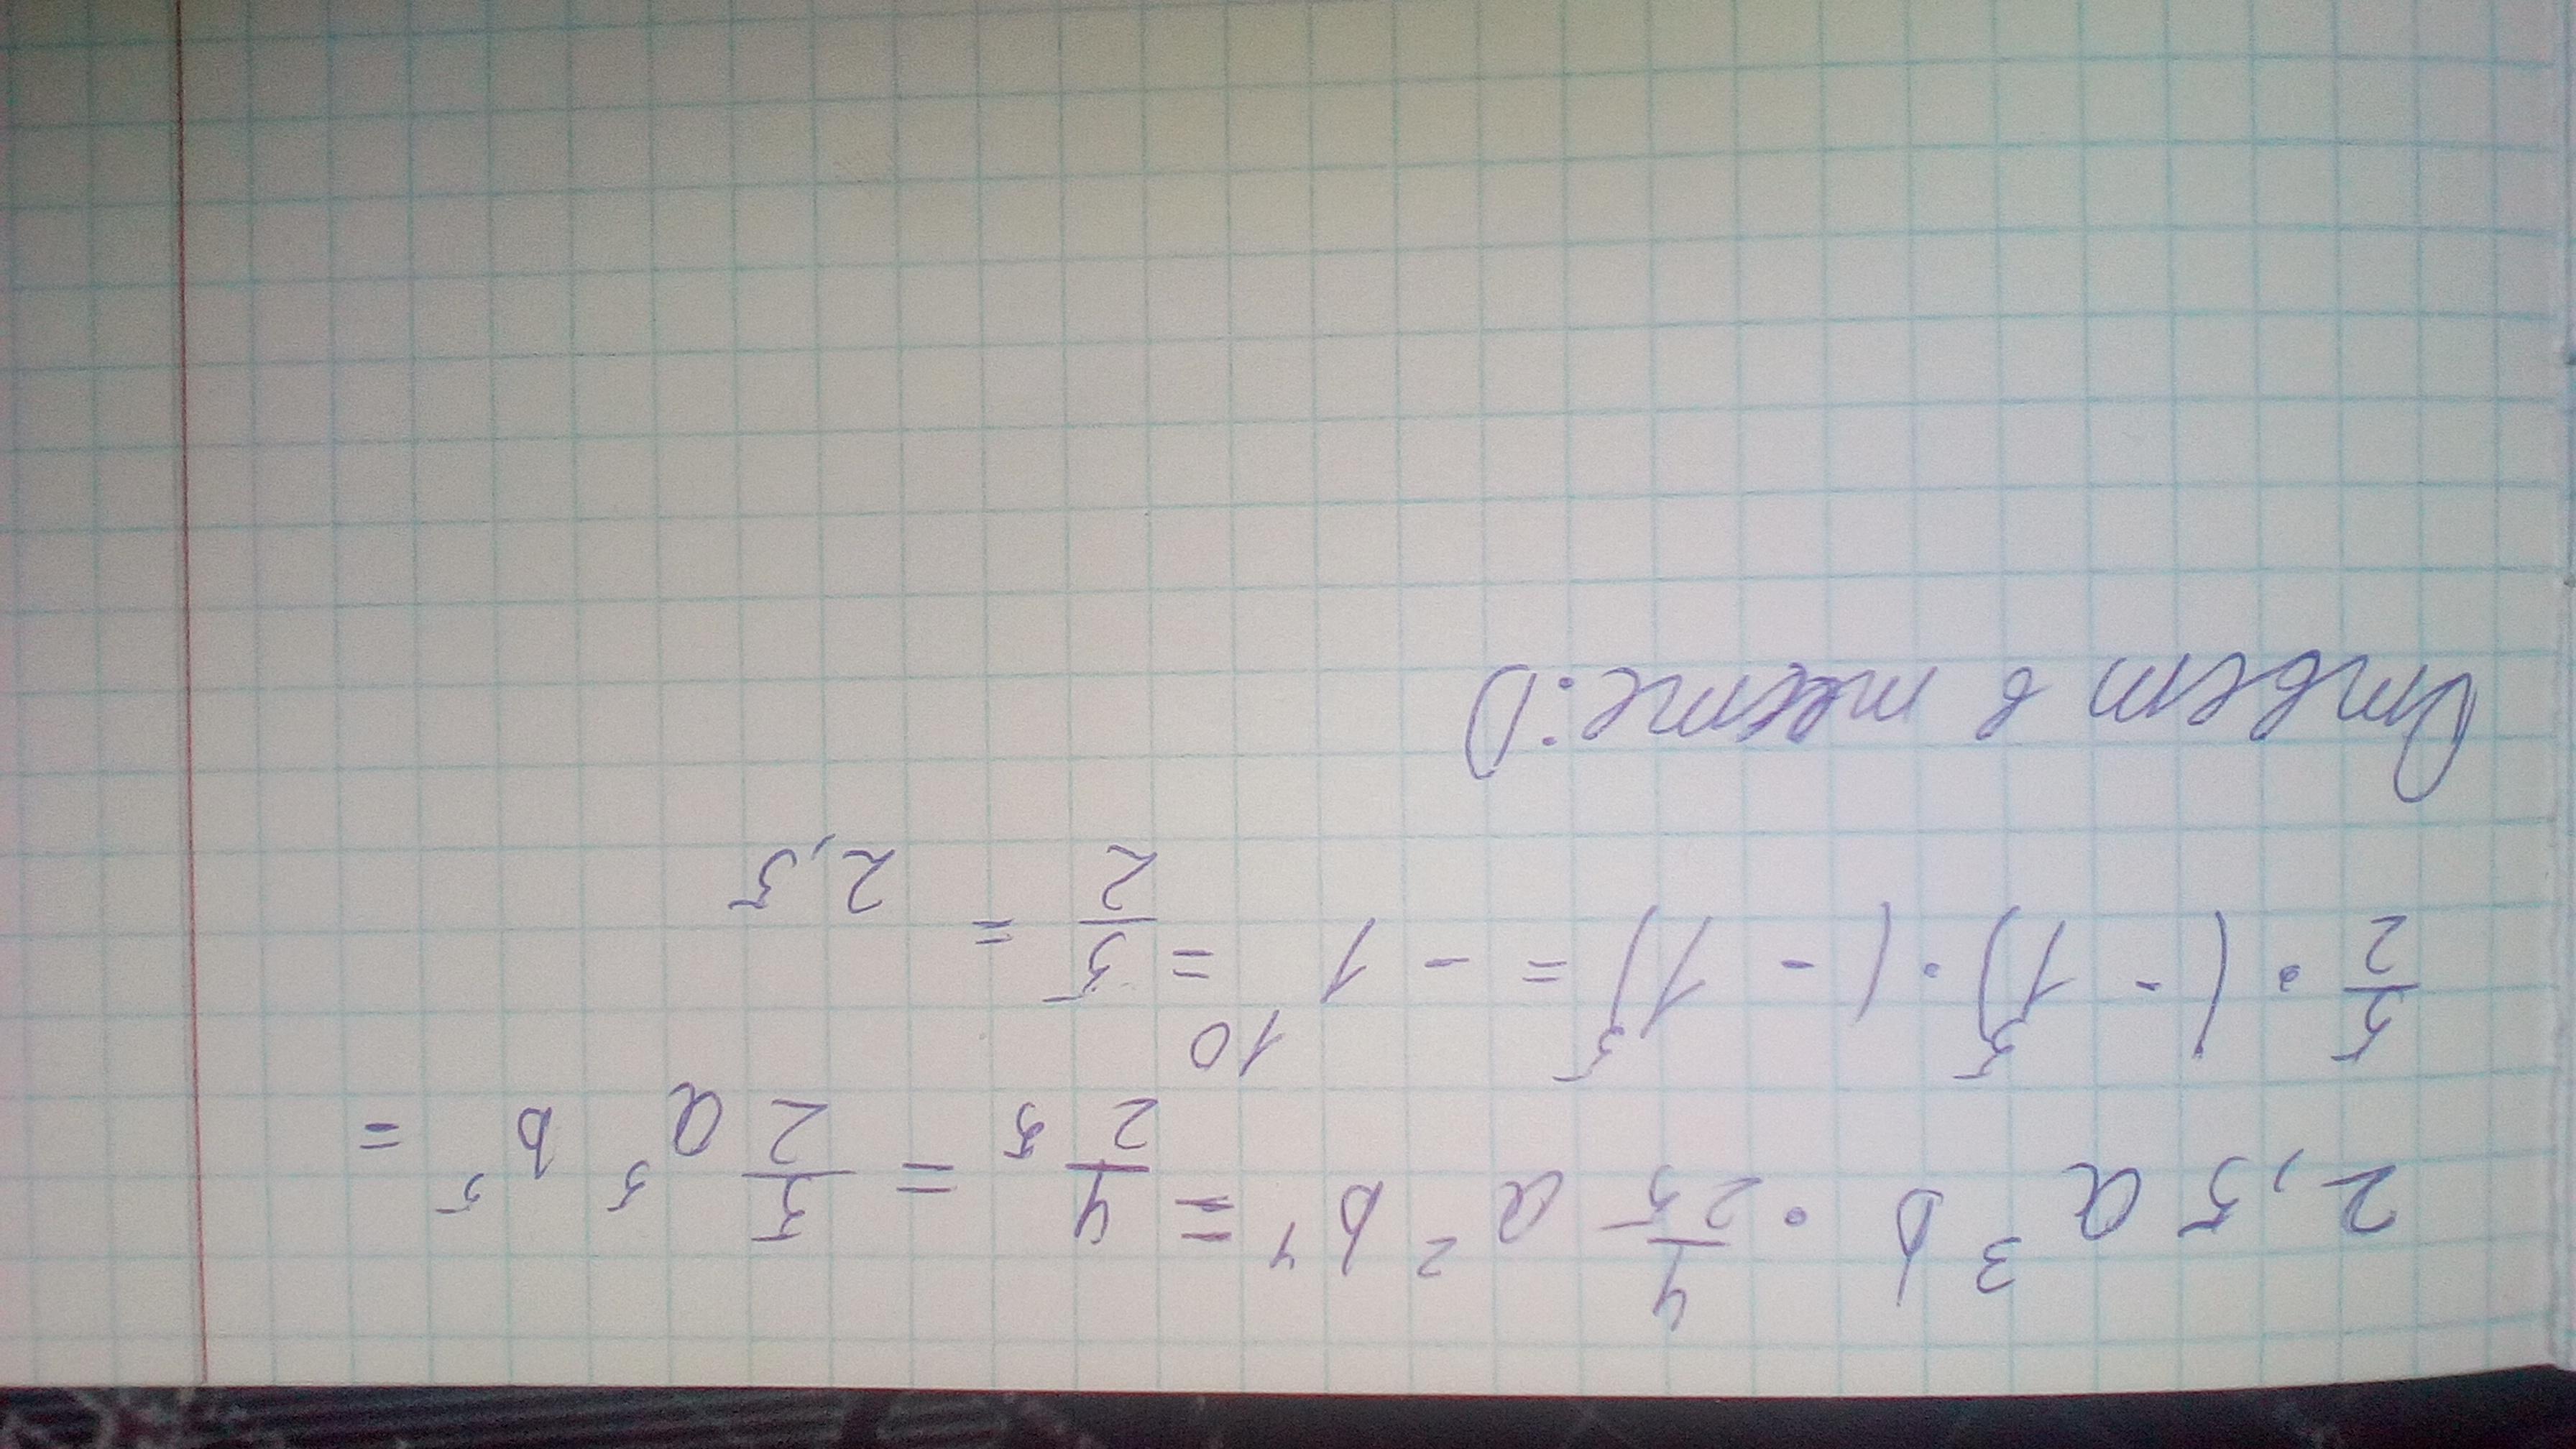 2,5 a³ b · 4/25 a² b⁴ = 4/25 = 5/2 a⁵ b⁵ =
5/2 · (-1)⁵ · (-1)⁵ = -1¹⁰ = 5/2 = 2,5
Ответ в тесте :D